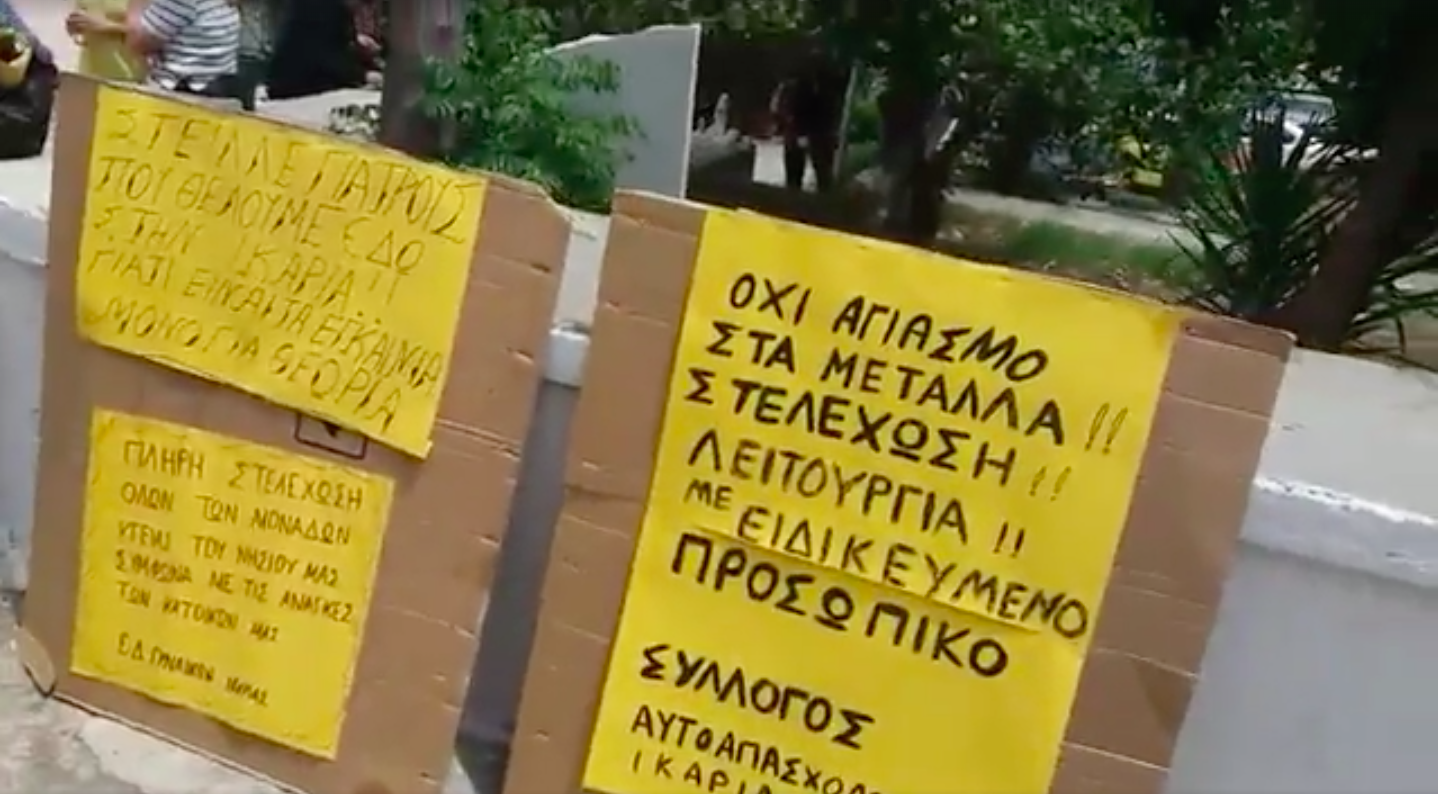 ΣΤΕΙΛΛΕ ΓΙΑΤΡΟΥΣ
ΠΟΥ ΘΕΛΟΥΜΕ ΕΔΩ
ΣΤΗΝ ΙΚΑΡΙΑ!!
ΓΙΑΤΙ ΕΙΝΑΙ ΤΑ ΕΓΚΑΙΝΙΑ
ΜΟΝΟ ΓΙΑ ΘΕΩΡΙΑ
ΠΛΗΡΗ ΣΤΕΛΕΧΩΣΗ
ΟΛΩΝ ΤΩΝ ΜΟΝΑΔΩΝ
ΥΓΕΙΑΣ ΤΟΥ ΝΗΣΙΟΥ ΜΑΣ
ΣΥΜΦΩΝΑ ΜΕ ΤΙΣ ΑΝΑΓΚΕΣ
ΤΩΝ ΚΑΤΟΙΚΩΝ ΜΑΣ
ΓΥΝΑΙΚΩΝ ΙΚΑΡΙΑΣ
ΟΧΙ ΑΓΙΑΣΜΟ
ΣΤΑ ΜΕΤΑΛΛΑ!!
ΣΤΕΛΕΧΩΣΗ!!
ΛΕΙΤΟΥΡΓΙΑ!!
ΜΕ ΕΙΔΙΚΕΥΜΕΝΟ
ΠΡΟΣΩΠΙΚΟ
ΣΥΛΛΟΓΟΣ
ΑΥΤΟΑΠΑΣΧΟΛ
ΙΚΑΡΙΑ